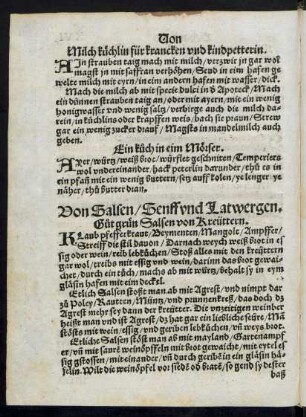 Von
Milch küchlin für krancken vnd kindpetterin.
AIn strauben taig mach mit milch/ verzwir jn gar wol
magst jn mit saffran verhöhen/ Seud in eim hafen ge
welte milch mit eyrn/ in eim andern hafen mit wasser/ dick.
Mach die milch ab mit specie dulci in d Apoteck/ Mach
ein dünnen strauben taig an/ oder mit ayern/ mit ein wenig
honigwasser vnd wenig saltz/ verbirge auch die milch dar
ein/ in küchlins oder krapffen weis/ bach sie praun/ Strew
gar ein wenig zucker drauf/ Magsts in mandelmilch auch
geben.
Ein küch in eim Mörser.
Ayer/ würtz/ weiß brot/ würflet geschniten/ Temperiers
wol vndereinander/ hack peterlin darunder/ thů es in
in ein pfañ mit ein wenig buttern/ setz auff kolen/ ye lenger ye
näher/ thů butter dran.
Von Salsen/ Senff vnd Latwergen.
Gůt grün Salsen von Kreüttern.
KLaub pfefferkraut/ Beymenten Mangolt/ Ampffer/
Streiff die stil dauon/ Darnach weych weiß brot in es
sig oder wein/ reib lebküchen/ Stoß alles mit den kreüttern
gar wol/ treibs mit essig vnd wein/ darinn das brot gewai-
chet/ durch ein tůch/ machs ab mit würtz/ behalt sy in eym
gläsin hafen mit eim deckel.
Etlich Salsen stoßt man ab mit Agrest/ vnd nimpt dar
zů Poley/ Rautten/ Müntz/ vnd prunnenkreß/ das doch dz
Agrest mehr sey dann der kreütter. Die vnzeitigen weinber
heißt man vnd ist Agrest/ dz hat gar ein liebliche seüre/ Mã
stößts mit wein/ essig/ vnd geriben lebküchen/ vñ weyß brot.
Etliche Salsen stößt man ab mit mayland/ Gartenampf
er/ vñ mit saurẽ weinöpffeln mit brot gewaicht/ mit eytel es
sig gstossen/ mit einander/ vñ durch geribẽ in ein gläsin hä-
fglin. Wilt die weinöpfel vor siedẽ oð bratẽ/ so gend sy dester
baß